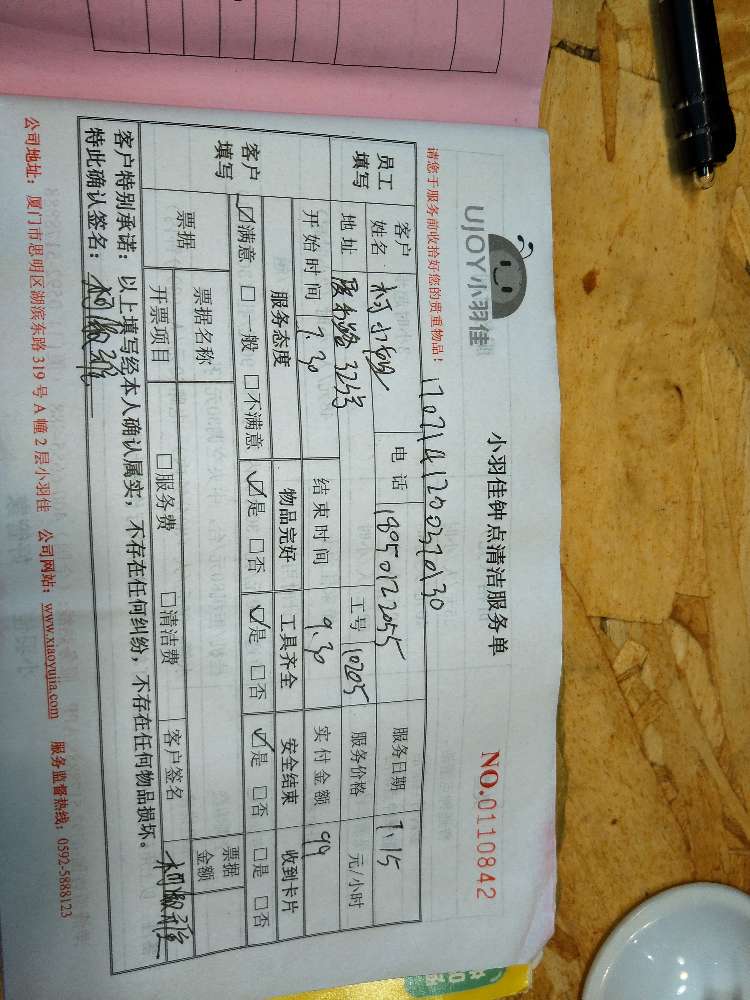 UJOY小羽佳
小羽佳钟点清洁服务单
NO.0110842
请您于服务前收拾好您的贵重物品!
员工填写
客户姓名 柯 电话 18950122055 服务日期 7.15
地址 325号 工号 10205 服务价格 元/小时
开始时间 7.30 结束时间 9.30 实付金额 99
客户填写
服务态度 物品完好 工具齐全 安全结束 收到卡片
☑满意 □一般 □不满意 ☑是 □否 ☑是 □否 ☑是 □否 □是 □否
票据 票据名称 票据金额
开票项目 □服务费 □清洁费 客户签名
客户特别承诺:以上填写经本人确认属实,不存在任何纠纷,不存在任何物品损坏。
特此确认签名:
公司地址:厦门市思明区湖滨东路319号A幢2层小羽佳 公司网站:www.xiaoyujia.com 服务监督热线:0592-5888123